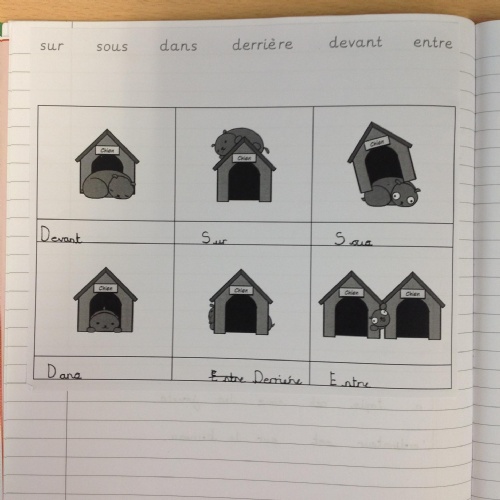 sur sous dans derrière devant entre
Chien Chien Chien
Devant Sur Sous
Chien Chien Chien Chien
Dans Entre Derrière Entre